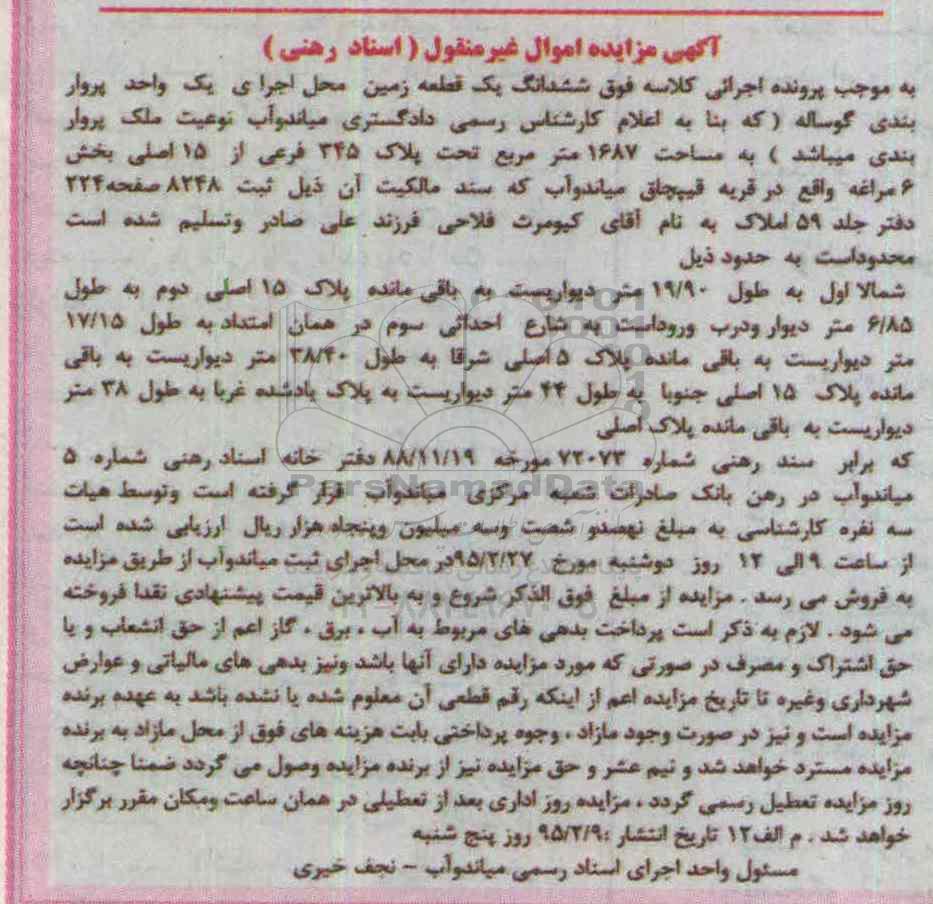 آگهی مزایده اموال غیرمنقول ( اسناد رهنی )
به موجب پرونده اجرائی کلاسه فوق ششدانگ یک قطعه زمین محل اجرا ی یک واحد پروار
بندی گوساله ( که بنا به اعلام کارشناس رسمی دادگستری میاندوآب نوعیت ملک پروار
بندی میباشد ) به مساحت ۱۶۸۷ متر مربع تحت پلاک ۳۴۵ فرعی از ۱۵ اصلی بخش
۶ مراغه واقع در قریه قیپچاق میاندوآب که سند مالکیت آن ذیل ثبت ۸۲۴۸ صفحه ۲۲۴
دفتر جلد ۵۹ املاک به نام آقای کیومرث فلاحی فرزند علی صادر وتسلیم شده است
محدوداست به حدود ذیل
شمالا اول به طول ۱۹/۹۰ متر دیواریست به باقی مانده پلاک ۱۵ اصلی دوم به طول
۶/۸۵ متر دیوار ودرب وروداست به شارع احداثی سوم در همان امتداد به طول ۱۷/۱۵
متر دیواریست به باقی مانده پلاک ۵ اصلی شرقا به طول ۳۸/۴۰ متر دیواریست به باقی
مانده پلاک ۱۵ اصلی جنوبا به طول ۴۴ متر دیواریست به پلاک یادشده غربا به طول ۳۸ متر
دیواریست به باقی مانده پلاک اصلی
که برابر سند رهنی شماره ۷۲۰۷۳ مورخه ۸۸/۱۱/۱۹ دفتر خانه اسناد رهنی شماره ۵
میاندوآب در رهن بانک صادرات شعبه مرکزی میاندوآب قرار گرفته است وتوسط هیات
سه نفره کارشناسی به مبلغ نهصدو شصت وسه میلیون وپنجاه هزار ریال ارزیابی شده است
از ساعت ۹ الی ۱۲ روز دوشنبه مورخ ۹۵/۲/۲۷در محل اجرای ثبت میاندوآب از طریق مزایده
به فروش می رسد . مزایده از مبلغ فوق الذکر شروع و به بالاترین قیمت پیشنهادی نقدا فروخته
می شود . لازم به ذکر است پرداخت بدهی های مربوط به آب ، برق ، گاز اعم از حق انشعاب و یا
حق اشتراک و مصرف در صورتی که مورد مزایده دارای آنها باشد ونیز بدهی های مالیاتی و عوارض
شهرداری وغیره تا تاریخ مزایده اعم از اینکه رقم قطعی آن معلوم شده یا نشده باشد به عهده برنده
مزایده است و نیز در صورت وجود مازاد ، وجوه پرداختی بابت هزینه های فوق از محل مازاد به برنده
مزایده مسترد خواهد شد و نیم عشر و حق مزایده نیز از برنده مزایده وصول می گردد ضمنا چنانچه
روز مزایده تعطیل رسمی گردد ، مزایده روز اداری بعد از تعطیلی در همان ساعت ومکان مقرر برگزار
خواهد شد . م الف۱۲ تاریخ انتشار :۹۵/۲/۹ روز پنج شنبه
مسئول واحد اجرای اسناد رسمی میاندوآب – نجف خیری
ParsNamadData